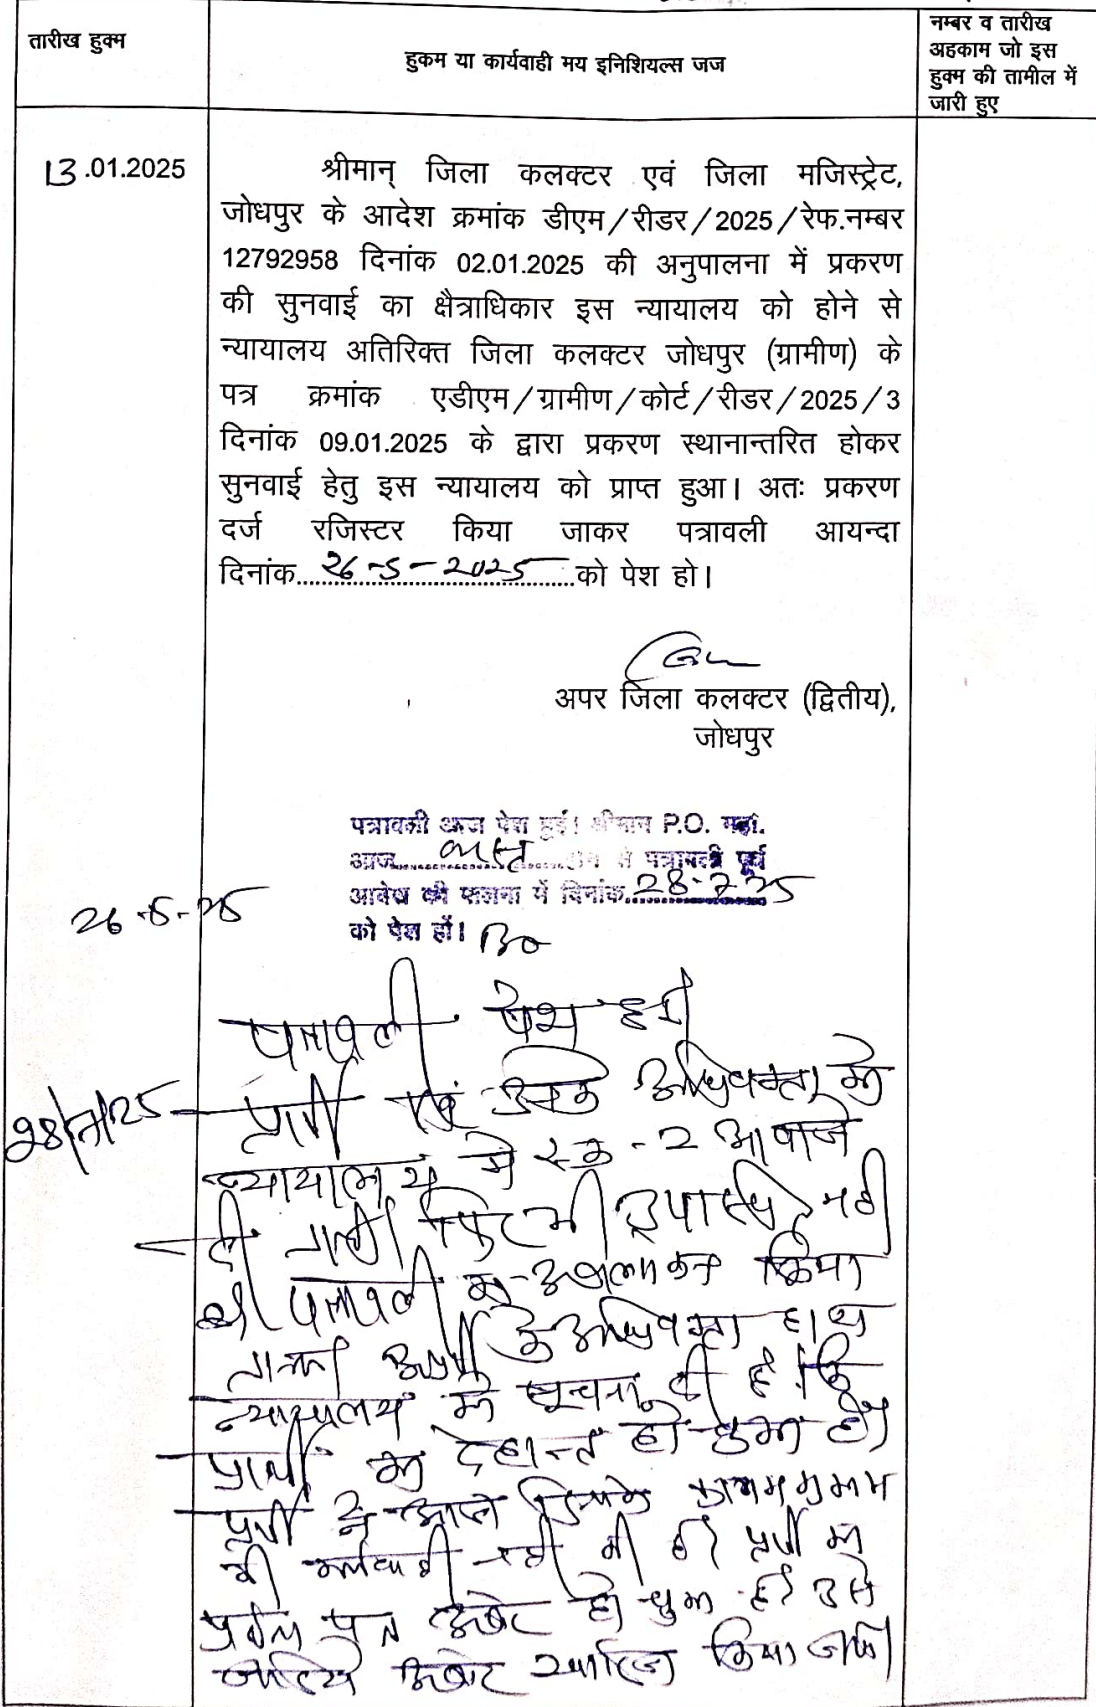 तारीख हुक्म
हुकम या कार्यवाही मय इनिशियल्स जज
नम्बर व तारीख
अहकाम जो इस
हुक्म की तामील में
जारी हुए
13.01.2025
श्रीमान् जिला कलक्टर एवं जिला मजिस्ट्रेट,
जोधपुर के आदेश क्रमांक डीएम/रीडर/2025/रेफ.नम्बर
12792958 दिनांक 02.01.2025 की अनुपालना में प्रकरण
की सुनवाई का क्षैत्राधिकार इस न्यायालय को होने से
न्यायालय अतिरिक्त जिला कलक्टर जोधपुर (ग्रामीण) के
पत्र क्रमांक एडीएम/ग्रामीण/कोर्ट/रीडर/2025/3
दिनांक 09.01.2025 के द्वारा प्रकरण स्थानान्तरित होकर
सुनवाई हेतु इस न्यायालय को प्राप्त हुआ। अतः प्रकरण
दर्ज रजिस्टर किया जाकर पत्रावली आयन्दा
दिनांक....26-5-2025....को पेश हो।
अपर जिला कलक्टर (द्वितीय),
जोधपुर
पत्रावली आज पेश हुई। श्रीमान P.O. महो.
आज....व्यस्त....होने से पत्रावली पूर्व
आदेश की पालना में दिनांक..28-7-25
को पेश हों।
26-5-25
पत्रावली पेश हुई
28/7/25
प्रार्थी एवं उनके अधिवक्ता को
न्यायालय में रूक-2 आवाजे
दी गयी फिर भी उपस्थित नही
पत्रावली का अवलोकन किया
गया के अधिवक्ता द्वारा
न्यायालय को सूचना दी है कि
प्रार्थी का देहान्त हो चुका है।
प्रार्थी कायम मुकाम
की कार्यवाही नही की है। प्रार्थी का
प्रार्थना पत्र अबेट हो चुका है। उसे
अबेट खारिज किया जावे